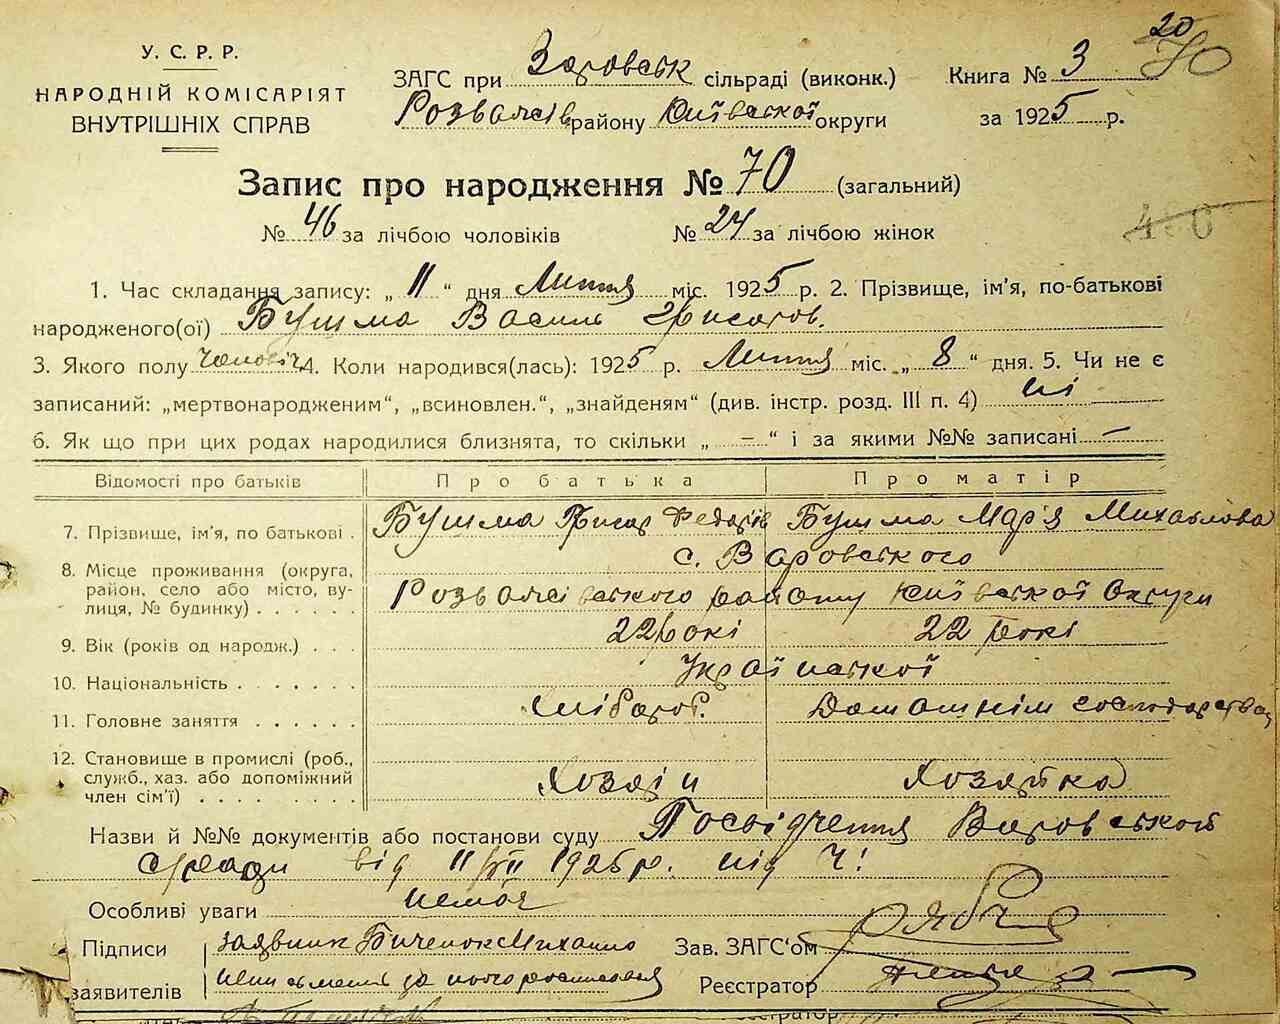 20
70
У. С. Р. Р.
НАРОДНІЙ КОМІСАРІЯТ
ВНУТРІШНІХ СПРАВ
ЗАГС при Варовськ сільраді (виконк.)
Розважів району Київської округи
Книга № 3
за 1925 р.
Запис про народження № 70 (загальний)
№ 46 за лічбою чоловіків № 24 за лічбою жінок
1. Час складання запису: „ 11 “ дня Липня міс. 1925 р. 2. Прізвище, ім’я, по-батькові
народженого(ої) Бушма Василь Грисоров.
3. Якого полу чоловіч 4. Коли народився(лась): 1925 р. Липня міс. „ 8 “ дня. 5. Чи не є
записаний: „мертвонародженим“, „всиновлен.“, „знайденям“ (див. інстр. розд. III п. 4) ні
6. Як що при цих родах народилися близнята, то скільки „ – “ і за якими №№ записані –
Відомості про батьків Про батька Про матір
7. Прізвище, ім’я, по батькові . Бушма Грисор Федорів Бушма Мар'я Михайлова
8. Місце проживання (округа, район, село або місто, вулиця, № будинку) . . . . . . с. Варовського
Розважівського району Київської Округи
9. Вік (років од народж.) . . . 22 рокі 22 рокі
10. Національність . . . . . . . Української
11. Головне заняття . . . . . . Хлібороб. Домашнім господарством
12. Становище в промислі (роб., служб., хаз. або допоміжний член сім’ї) . . . . . . . . . Хозяін Хозяйка
Назви й №№ документів або постанови суду Посвідчення Варовської
сради від 11/VII 1925 р. під Ч!
Особливі уваги немає
Підписи заявник Биченок Михайло Зав. ЗАГС’ом Рябч
заявителів неписьменій за нього росписався Реєстратор